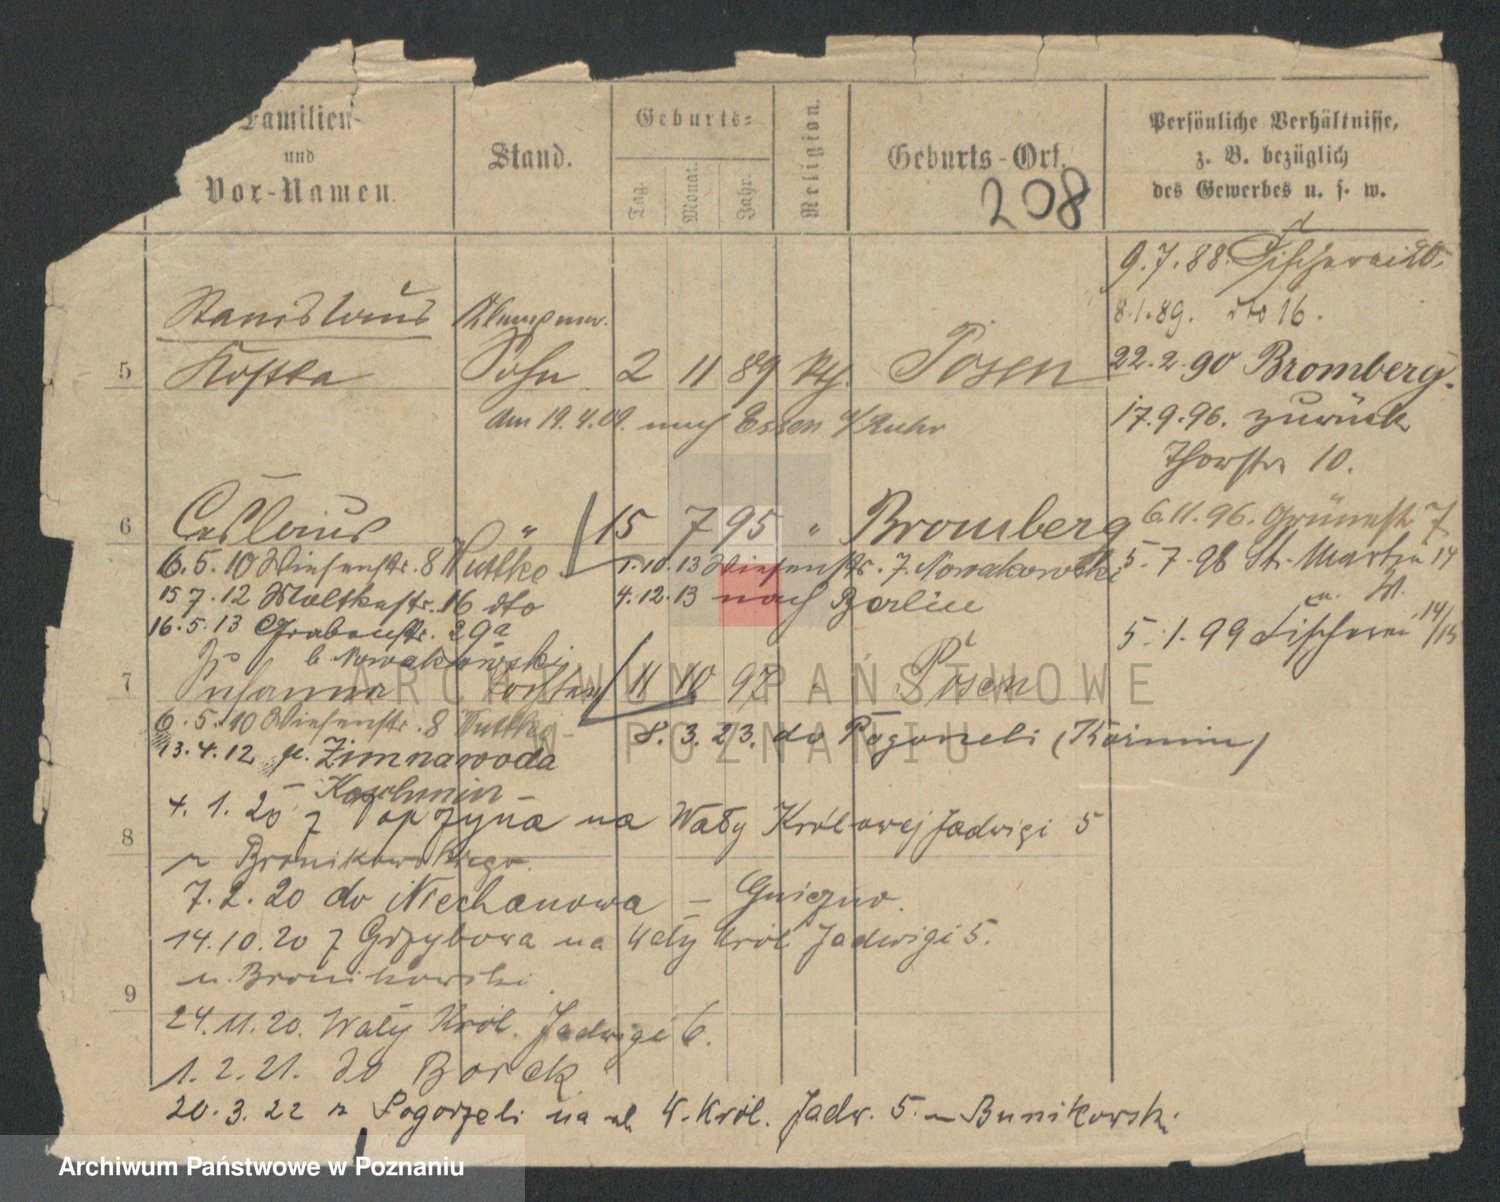 Familien-
und
Vor-Namen.
Stand.
Geburts-
Tag.
Monat.
Jahr.
Religion.
Geburts-Ort.
208
Persönliche Verhältnisse,
z. B. bezüglich
des Gewerbes u. s. w.
9.7.88. Fischerei
8.1.89. dto 16.
22.2.90 Bromberg.
17.9.96. zurück
Thorstr 10.
6.11.96. Grünestr 7
5.7.98 St. Martin 14
5.1.99 Fischerei 14/15
Stanislaus Klempner.
5 Kostka Sohn 2 11 89 kth. Posen
Am 19.4.09. nach Essen a/Ruhr
6 Ceslaus " 15 7 95 " Bromberg
6.5.10 Wiesenstr. 8 Wuttke
1.10.13 Wiesenstr. 7. Nowakowski
15 7.12 Moltkestr. 16 dto
4.12.13 nach Berlin
16.5.13 Grabenstr. 29a
b. Nowakowski
7 Susanna Tochter 11 10 97 " Posen
6.5.10 Wiesenstr. 8 Wuttke
8.3.23. do Pogorzeli (Koźmin)
13.4.12 Zimnawoda
Koschmin
8
4.1.20 z Popzyna na Wały Królowej Jadwigi 5
Bronikowskiego.
7.2.20 do Niechanowa – Gniezno.
14.10.20 z Grzybowa na Wały Król Jadwigi 5.
u. Bronikowski
9
24.11.20. Wały Król. Jadwigi 6.
1.2.21. do Borek
20.3.22 z Pogorzeli na ul. W. Król. Jadw. 5. u Bronikowski
ARCHIWUM PAŃSTWOWE
W POZNANIU
Archiwum Państwowe w Poznaniu